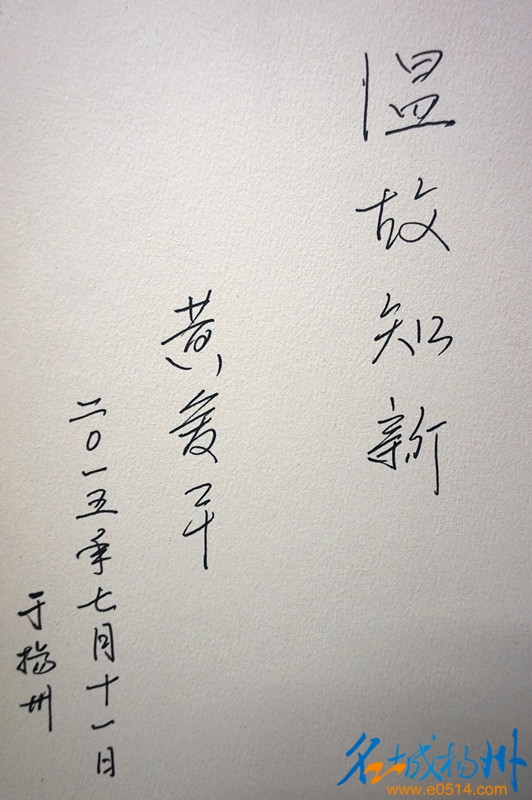 温故知新
黄爱平
二〇一五年七月十一日
于扬州
名城扬州
www.e0514.com